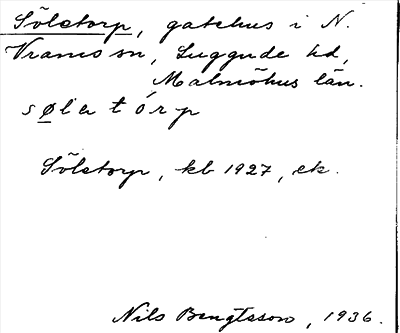 Söletorp, gatehus i N.
Vrams sn, Luggude hd,
Malmöhus län.
sø̱lətórp
Söletorp, kb 1927, ek.
Nils Bengtsson, 1936.